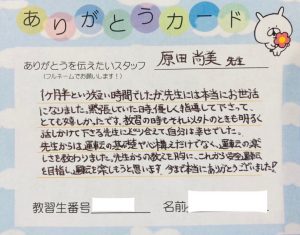 ありがとうカード
ありがとうを伝えたいスタッフ 原田尚美 先生
(フルネームでお願いします!)
1ヶ月半という短い時間でしたが、先生には本当にお世話
になりました。緊張していた時、優しく指導して下さって、
とても嬉しかったです。教習の時もそれ以外のときも明るく
話しかけて下さる先生にどり会えて自分は幸せでした。
先生からは、運転の基礎や心構えだけでなく、運転の楽
しさを教わりました。先生からの教えを胸に、これから安全運転
を目指し、運転を楽しもうと思います。今まで本当にありがとうございました!
教習生番号 名前